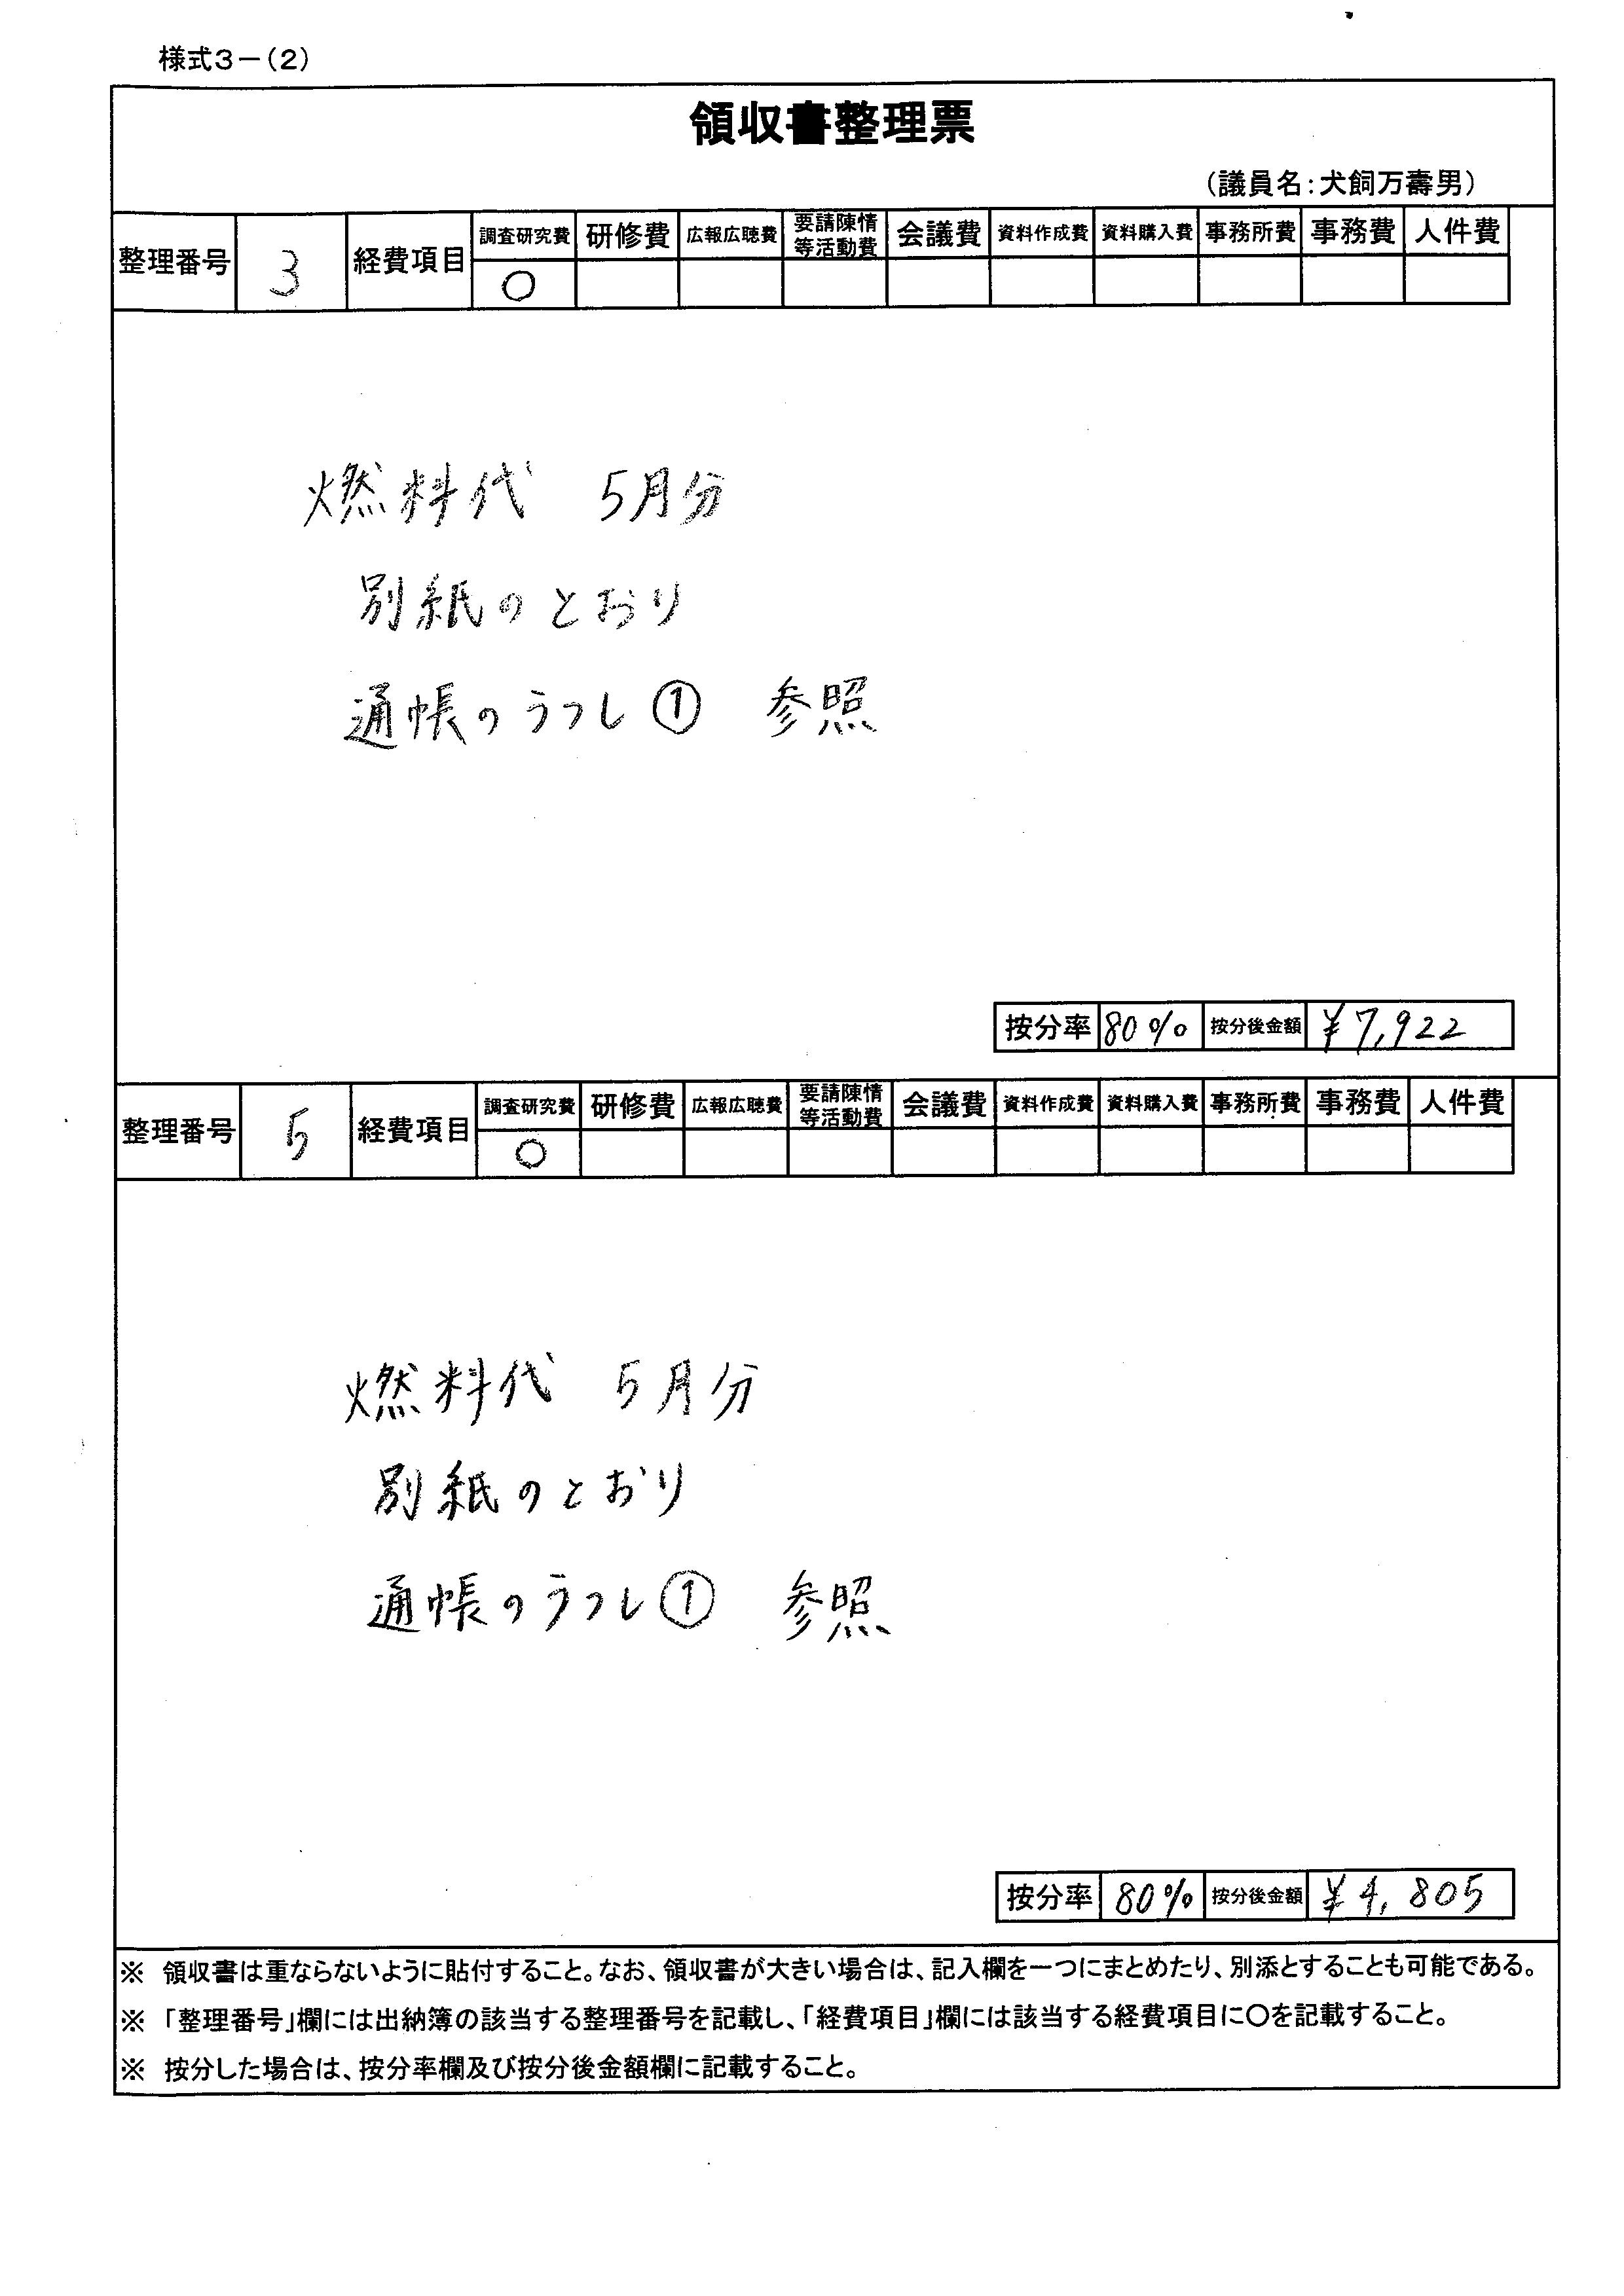 様式3－(2)
領収書整理票
(議員名:犬飼万壽男)
整理番号 3 経費項目 調査研究費 研修費 広報広聴費 要請陳情等活動費 会議費 資料作成費 資料購入費 事務所費 事務費 人件費
○
燃料代 5月分
別紙のとおり
通帳のうつし① 参照
按分率 80% 按分後金額 ¥7,922
整理番号 5 経費項目 調査研究費 研修費 広報広聴費 要請陳情等活動費 会議費 資料作成費 資料購入費 事務所費 事務費 人件費
○
燃料代 5月分
別紙のとおり
通帳のうつし① 参照
按分率 80% 按分後金額 ¥4,805
※ 領収書は重ならないように貼付すること。なお、領収書が大きい場合は、記入欄を一つにまとめたり、別添とすることも可能である。
※ 「整理番号」欄には出納簿の該当する整理番号を記載し、「経費項目」欄には該当する経費項目に〇を記載すること。
※ 按分した場合は、按分率欄及び按分後金額欄に記載すること。